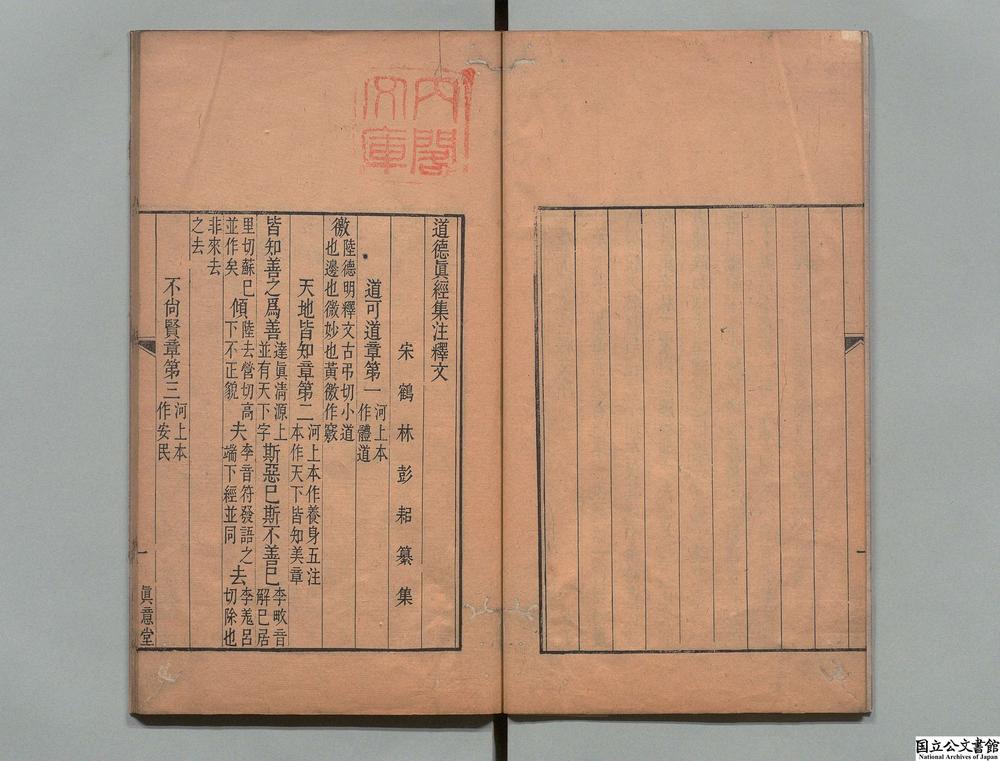 內閣
文庫
道德眞經集注釋文
宋鶴林彭耜纂集
道可道章第一 河上本
作體道
徼 陸德明釋文古弔切小道
也邊也微妙也黃徼作竅
天地皆知章第二 河上本作養身五注
本作天下皆知美章
皆知善之爲善 達眞淸源上
並有天下字 斯惡巳斯不善巳 李畋音
解巳居
里切蘇巳
並作矣 傾 陸去營切高
下不正貌 夫 李音符發語之
端下經並同 去 李羗呂
切除也
非來去
之去
不尙賢章第三 河上本
作安民
一
眞意堂
一
国立公文書館
National Archives of Japan